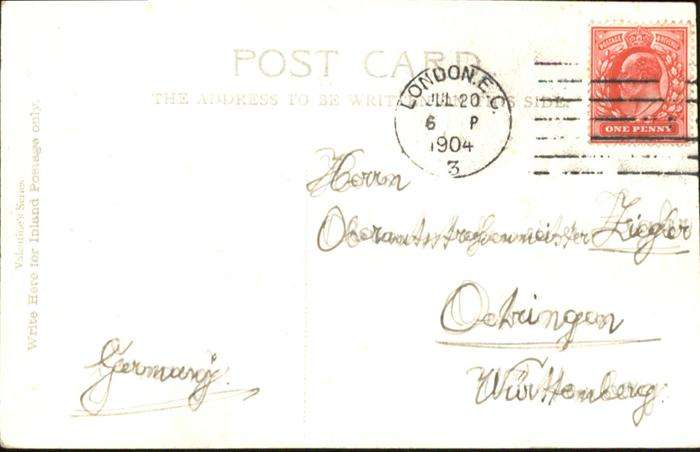 POST CARD
THE ADDRESS TO BE WRITTEN ON THIS SIDE.
Valentine's Series
Write Here for Inland Postage only.
LONDON.E.C.
JUL 20
6 P
1904
3
ONE PENNY
Herrn
Oberamtsstraßenmeister Ziegler
Oehringen
Württemberg.
Germany.